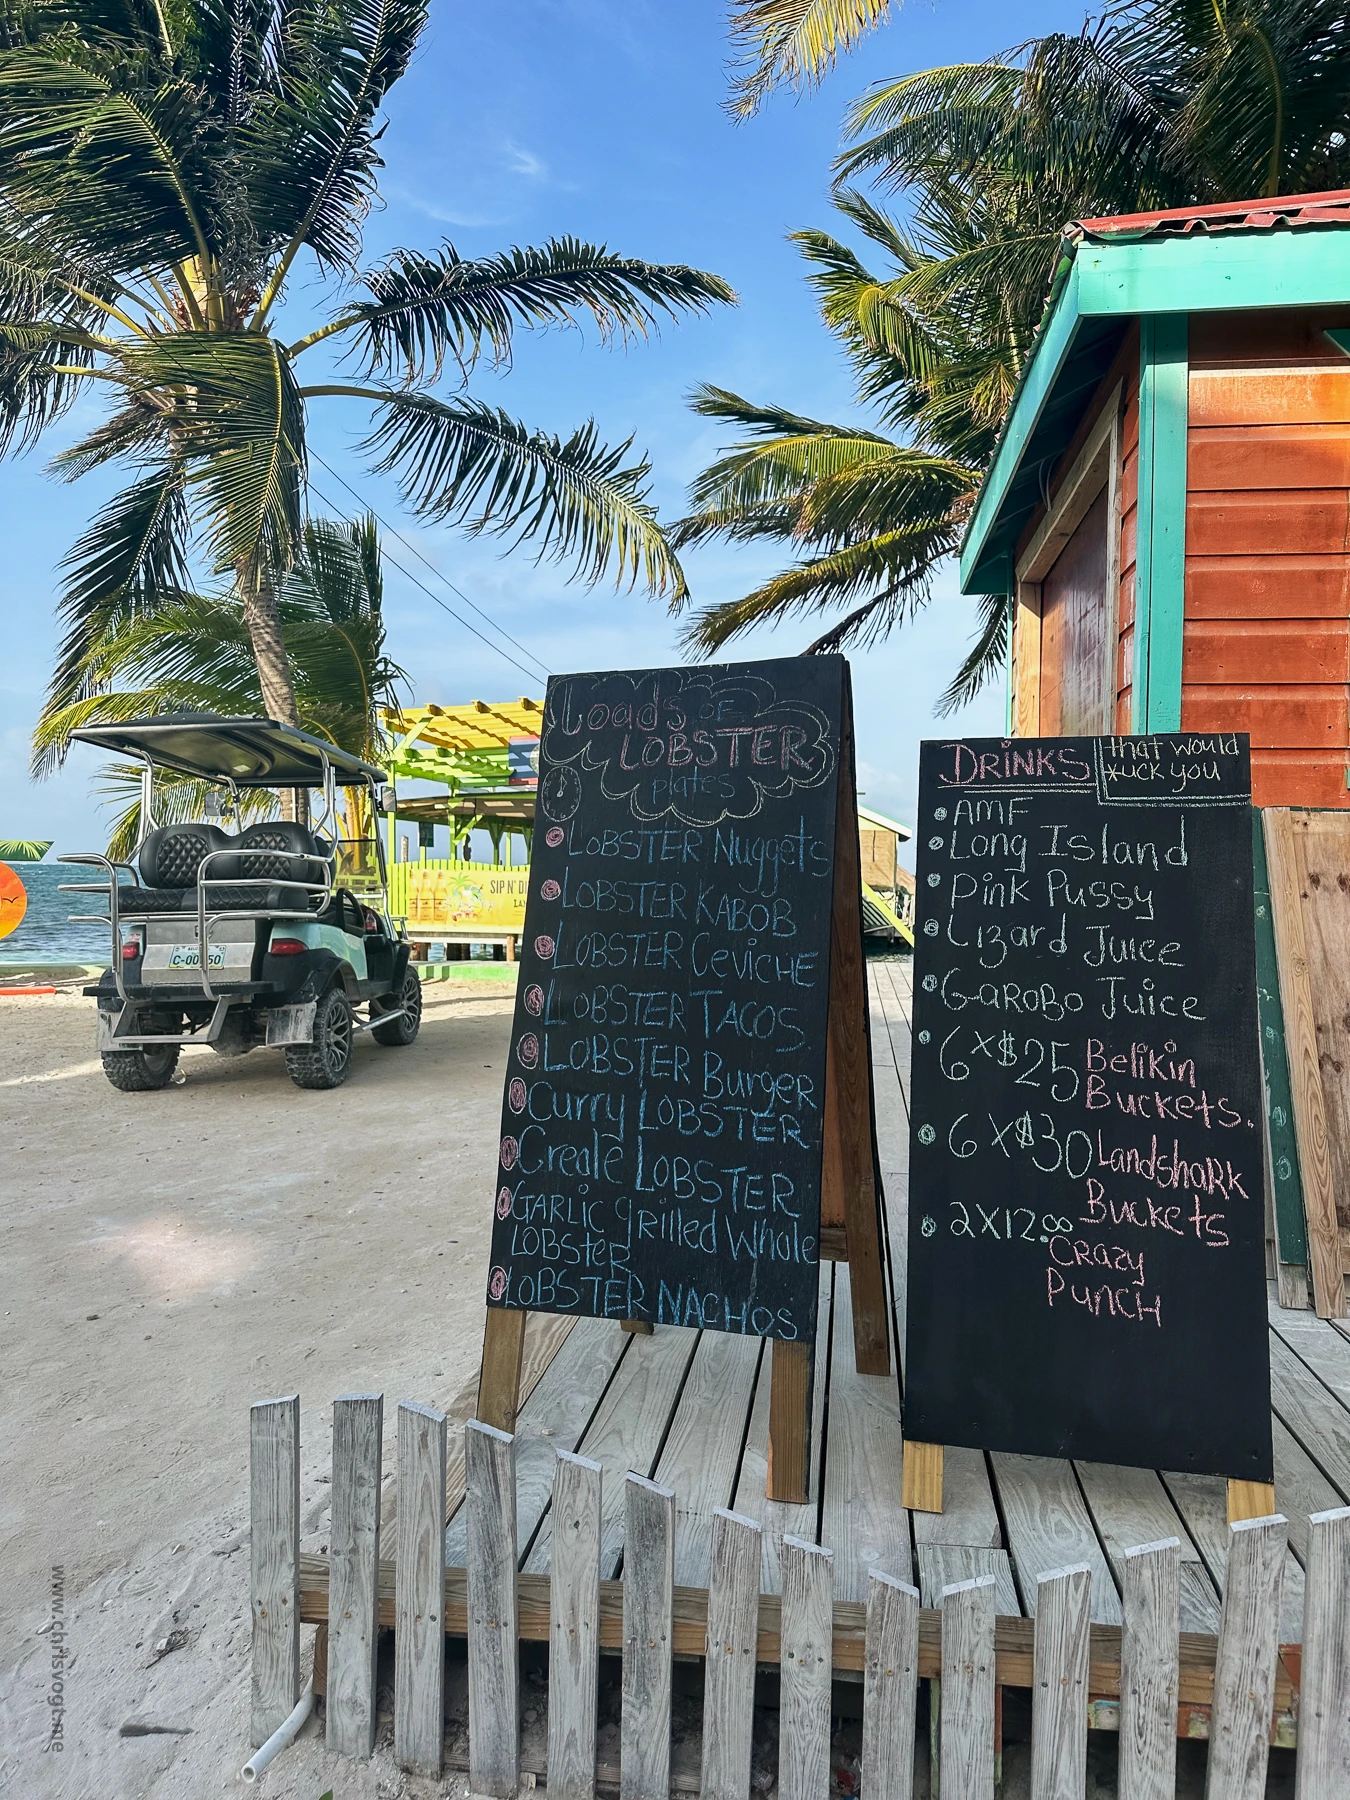 Loads OF
LOBSTER
plates
LOBSTER Nuggets
LOBSTER KABOB
LOBSTER CevicHE
LOBSTER TACOS
LOBSTER Burger
Curry LOBSTER
Creole LOBSTER
GARLIC grilled Whole
LOBSTER
LOBSTER NACHOS
DRINKS
that would
*uck you
AMF
Long Island
Pink Pussy
Lizard Juice
GaRoBo Juice
6x$25 Belikin
Buckets.
6x$30 LandshaRK
Buckets
2x12.00
CRazy
PuncH
SIP N' DI
www.chrisvogt.me